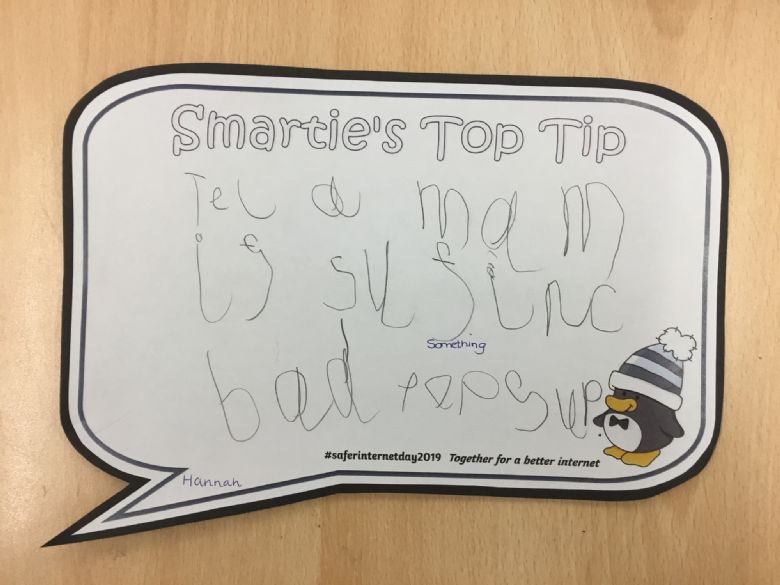 Smartie's Top Tip
Tel a mam
if sufinc
Something
bad pops up
#saferinternetday2019 Together for a better internet
Hannah